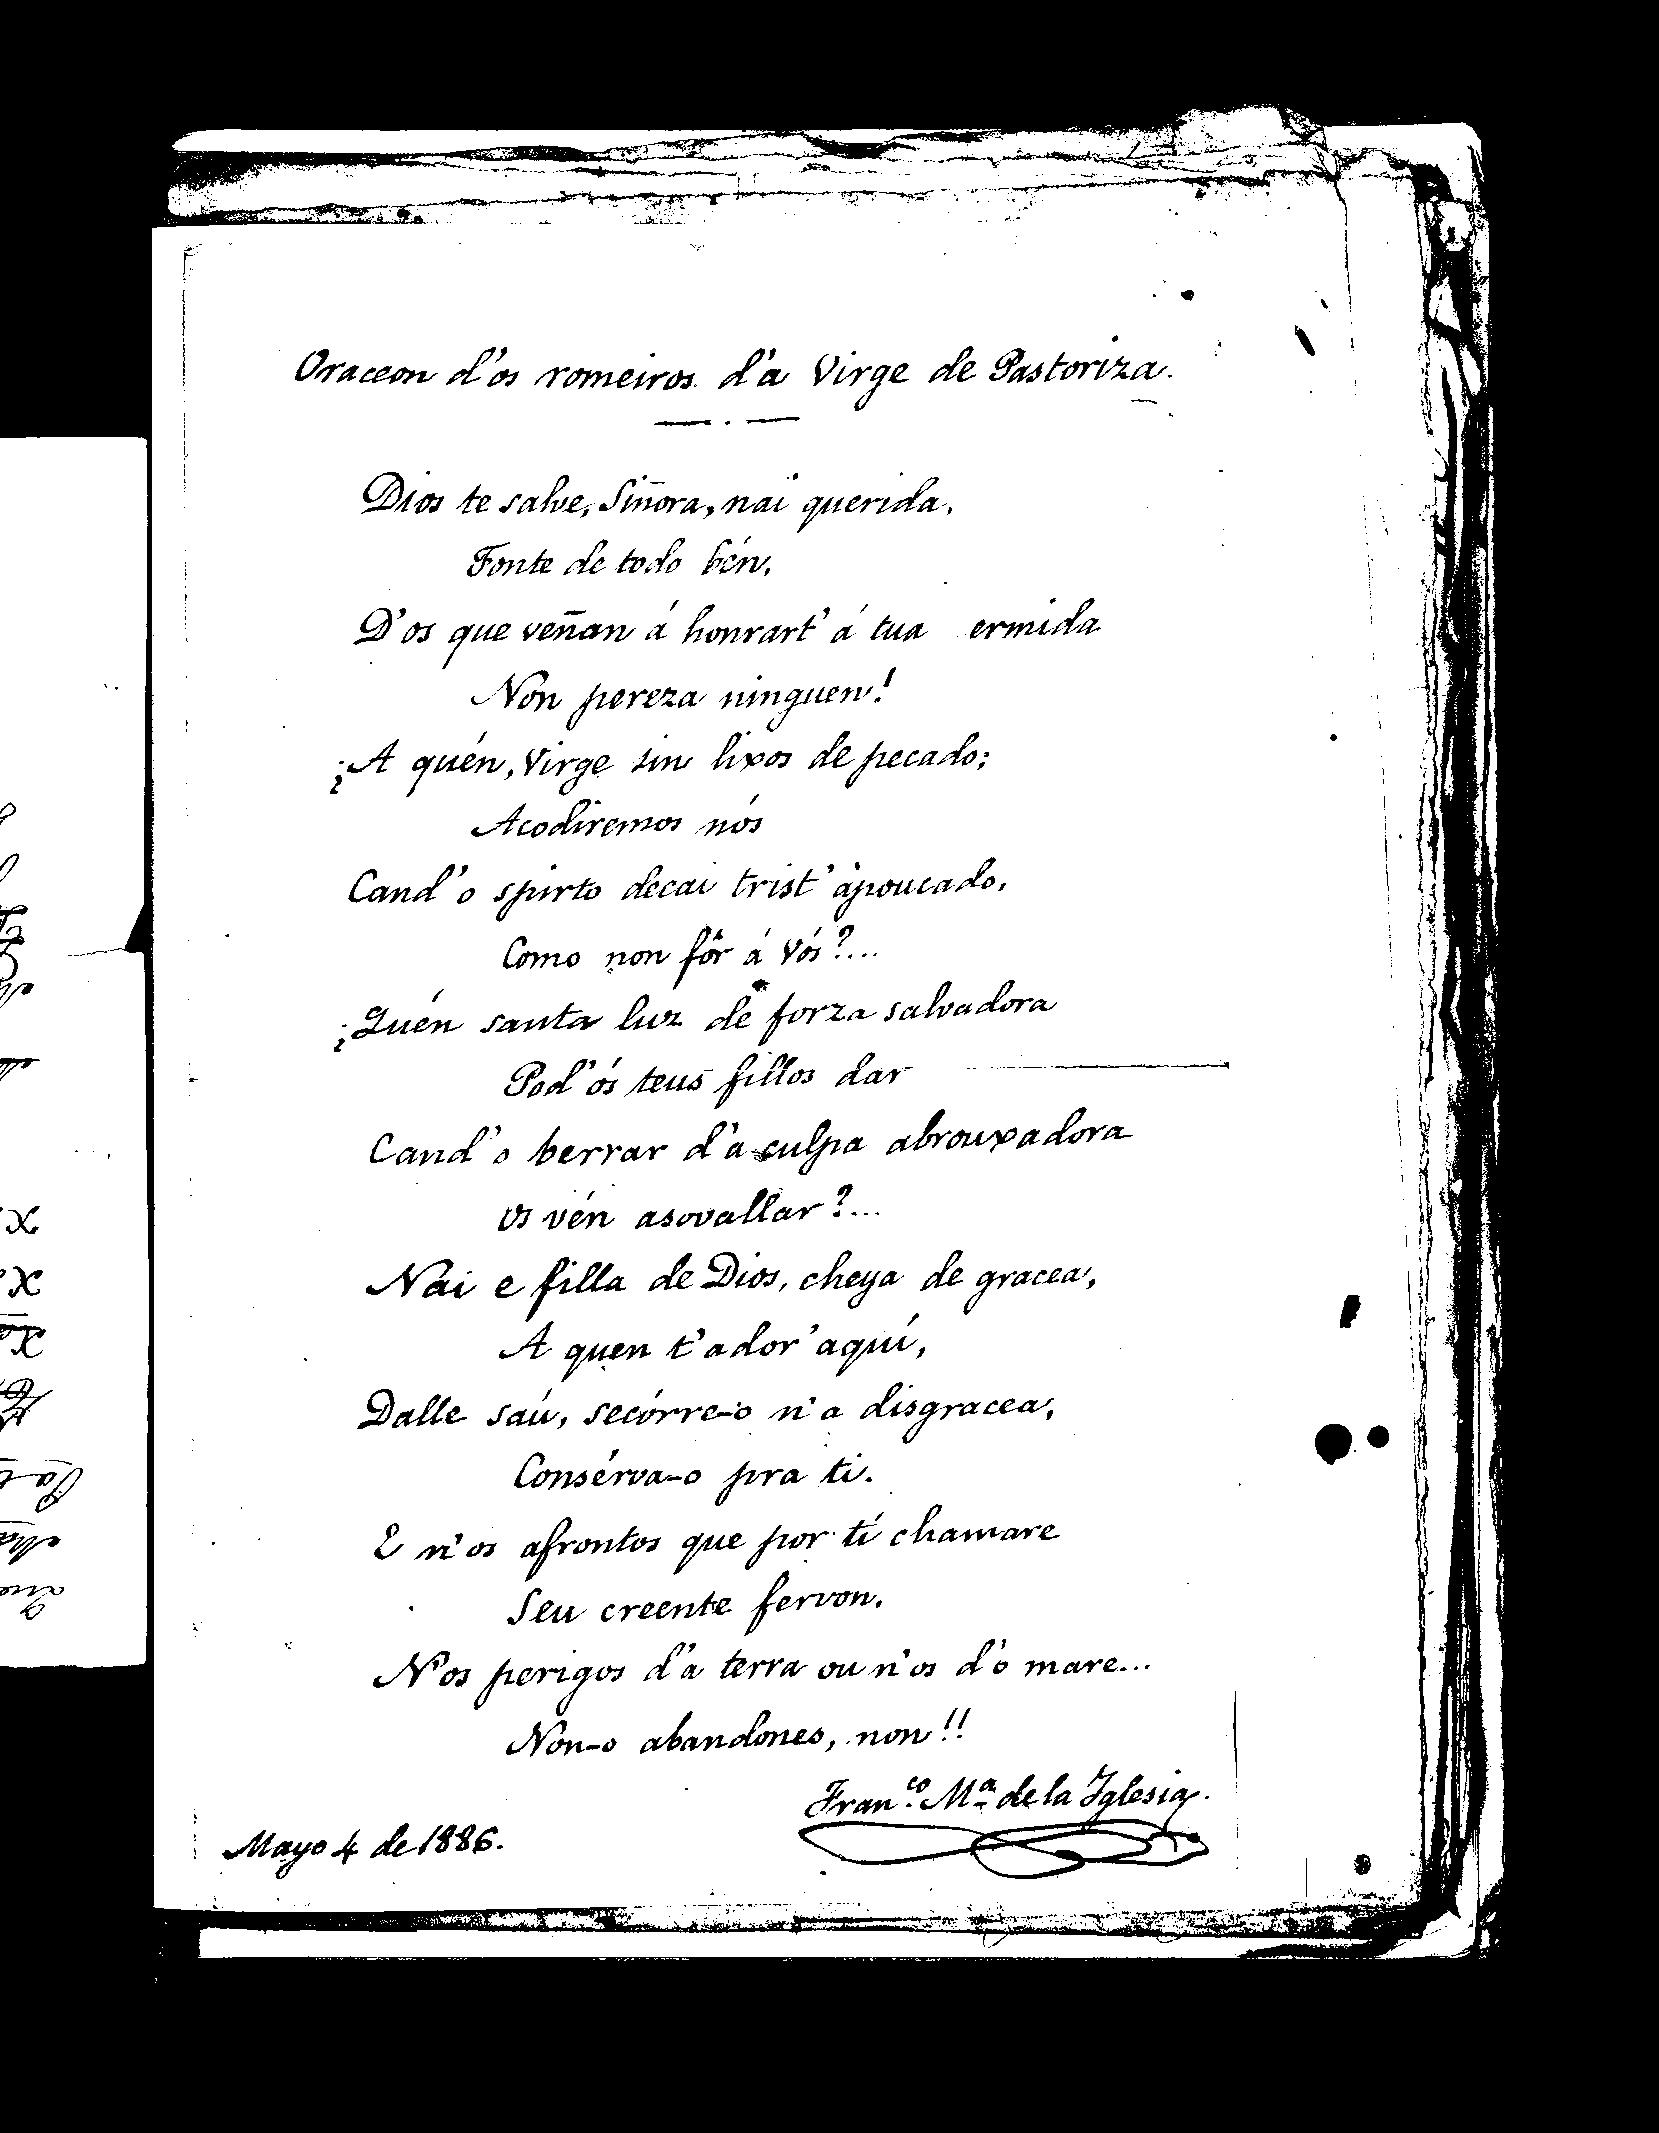 Oraceon d'os romeiros d'a Virge de Pastoriza.
Dios te salve, Siñora, nai querida,
Fonte de todo bén,
D'os que veñan á honrart' á tua ermida
Non pereza ninguen!
¿A quén, Virge sin lixos de pecado;
Acodiremos nós
Cand' o spirto decai trist' àpoucado,
Como non fôr á Vós?....
¿Quén santa luz de forza salvadora
Pod' ós teus fillos dar
Cand' o berrar d'a culpa abrouxadora
Os vén asovallar?...
Nai e filla de Dios, cheya de gracea,
A quen t'ador' aquí,
Dalle saú, secórre-o n'a disgracea,
Consérva-o pra ti.
E n'os afrontos que por tí chamare
Seu creente fervon,
N'os perigos d'a terra ou n'os d'o mare...
Non-o abandones, non!!
Fran.co Mª de la Iglesia.
Mayo 4 de 1886.